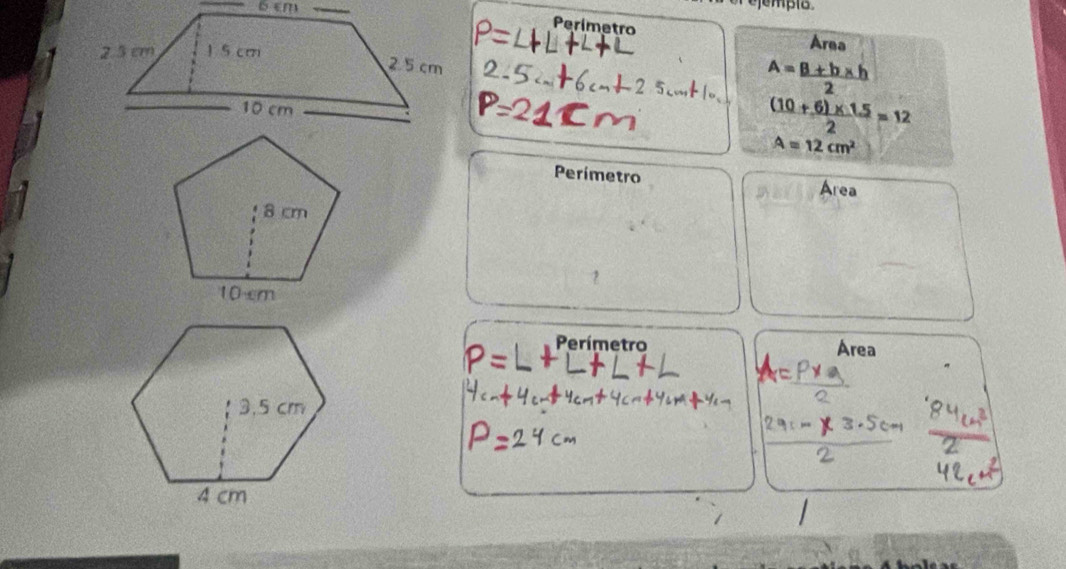 ejemplo.
6 cm
2.5 cm
1.5 cm
2.5 cm
10 cm
Perímetro
P=L+L+L+L
2.5cm+6cm+2.5cm+10
P=21cm
Área
A = B + b x h
2
(10 + 6) x 1.5 = 12
2
A = 12 cm²
8 cm
10 cm
Perímetro
Área
3.5 cm
4 cm
Perímetro
P=L+L+L+L
4cm+4cm+4cm+4cm+4cm+4cm
P=24 cm
Área
A=Pxa
2
24cm x 3.5cm
2
84cm²
2
42cm²